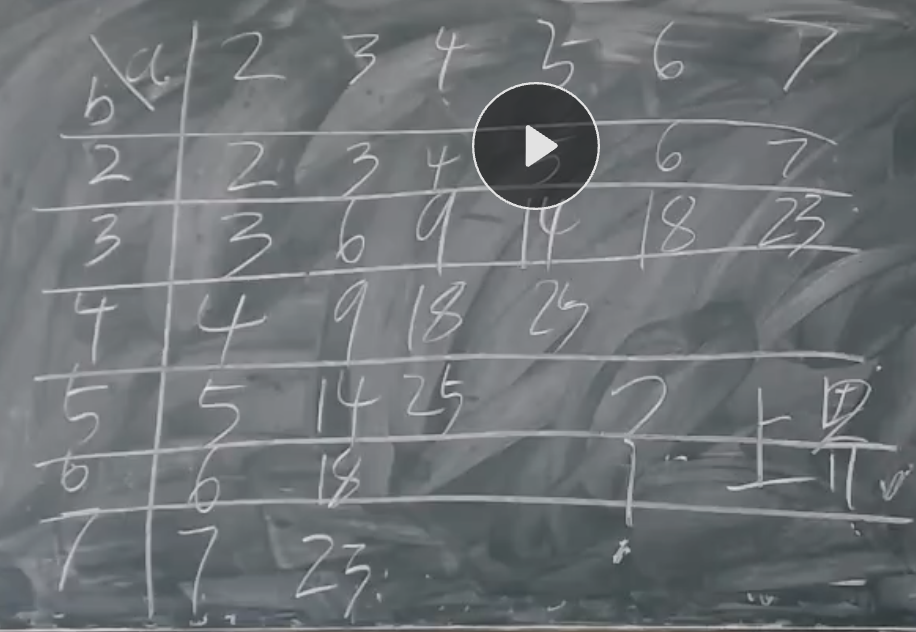 a 2 3 4 5 6 7
b
2 2 3 4 5 6 7
3 3 6 9 14 18 23
4 4 9 18 25
5 5 14 25 ? 上界
6 6 18
7 7 23